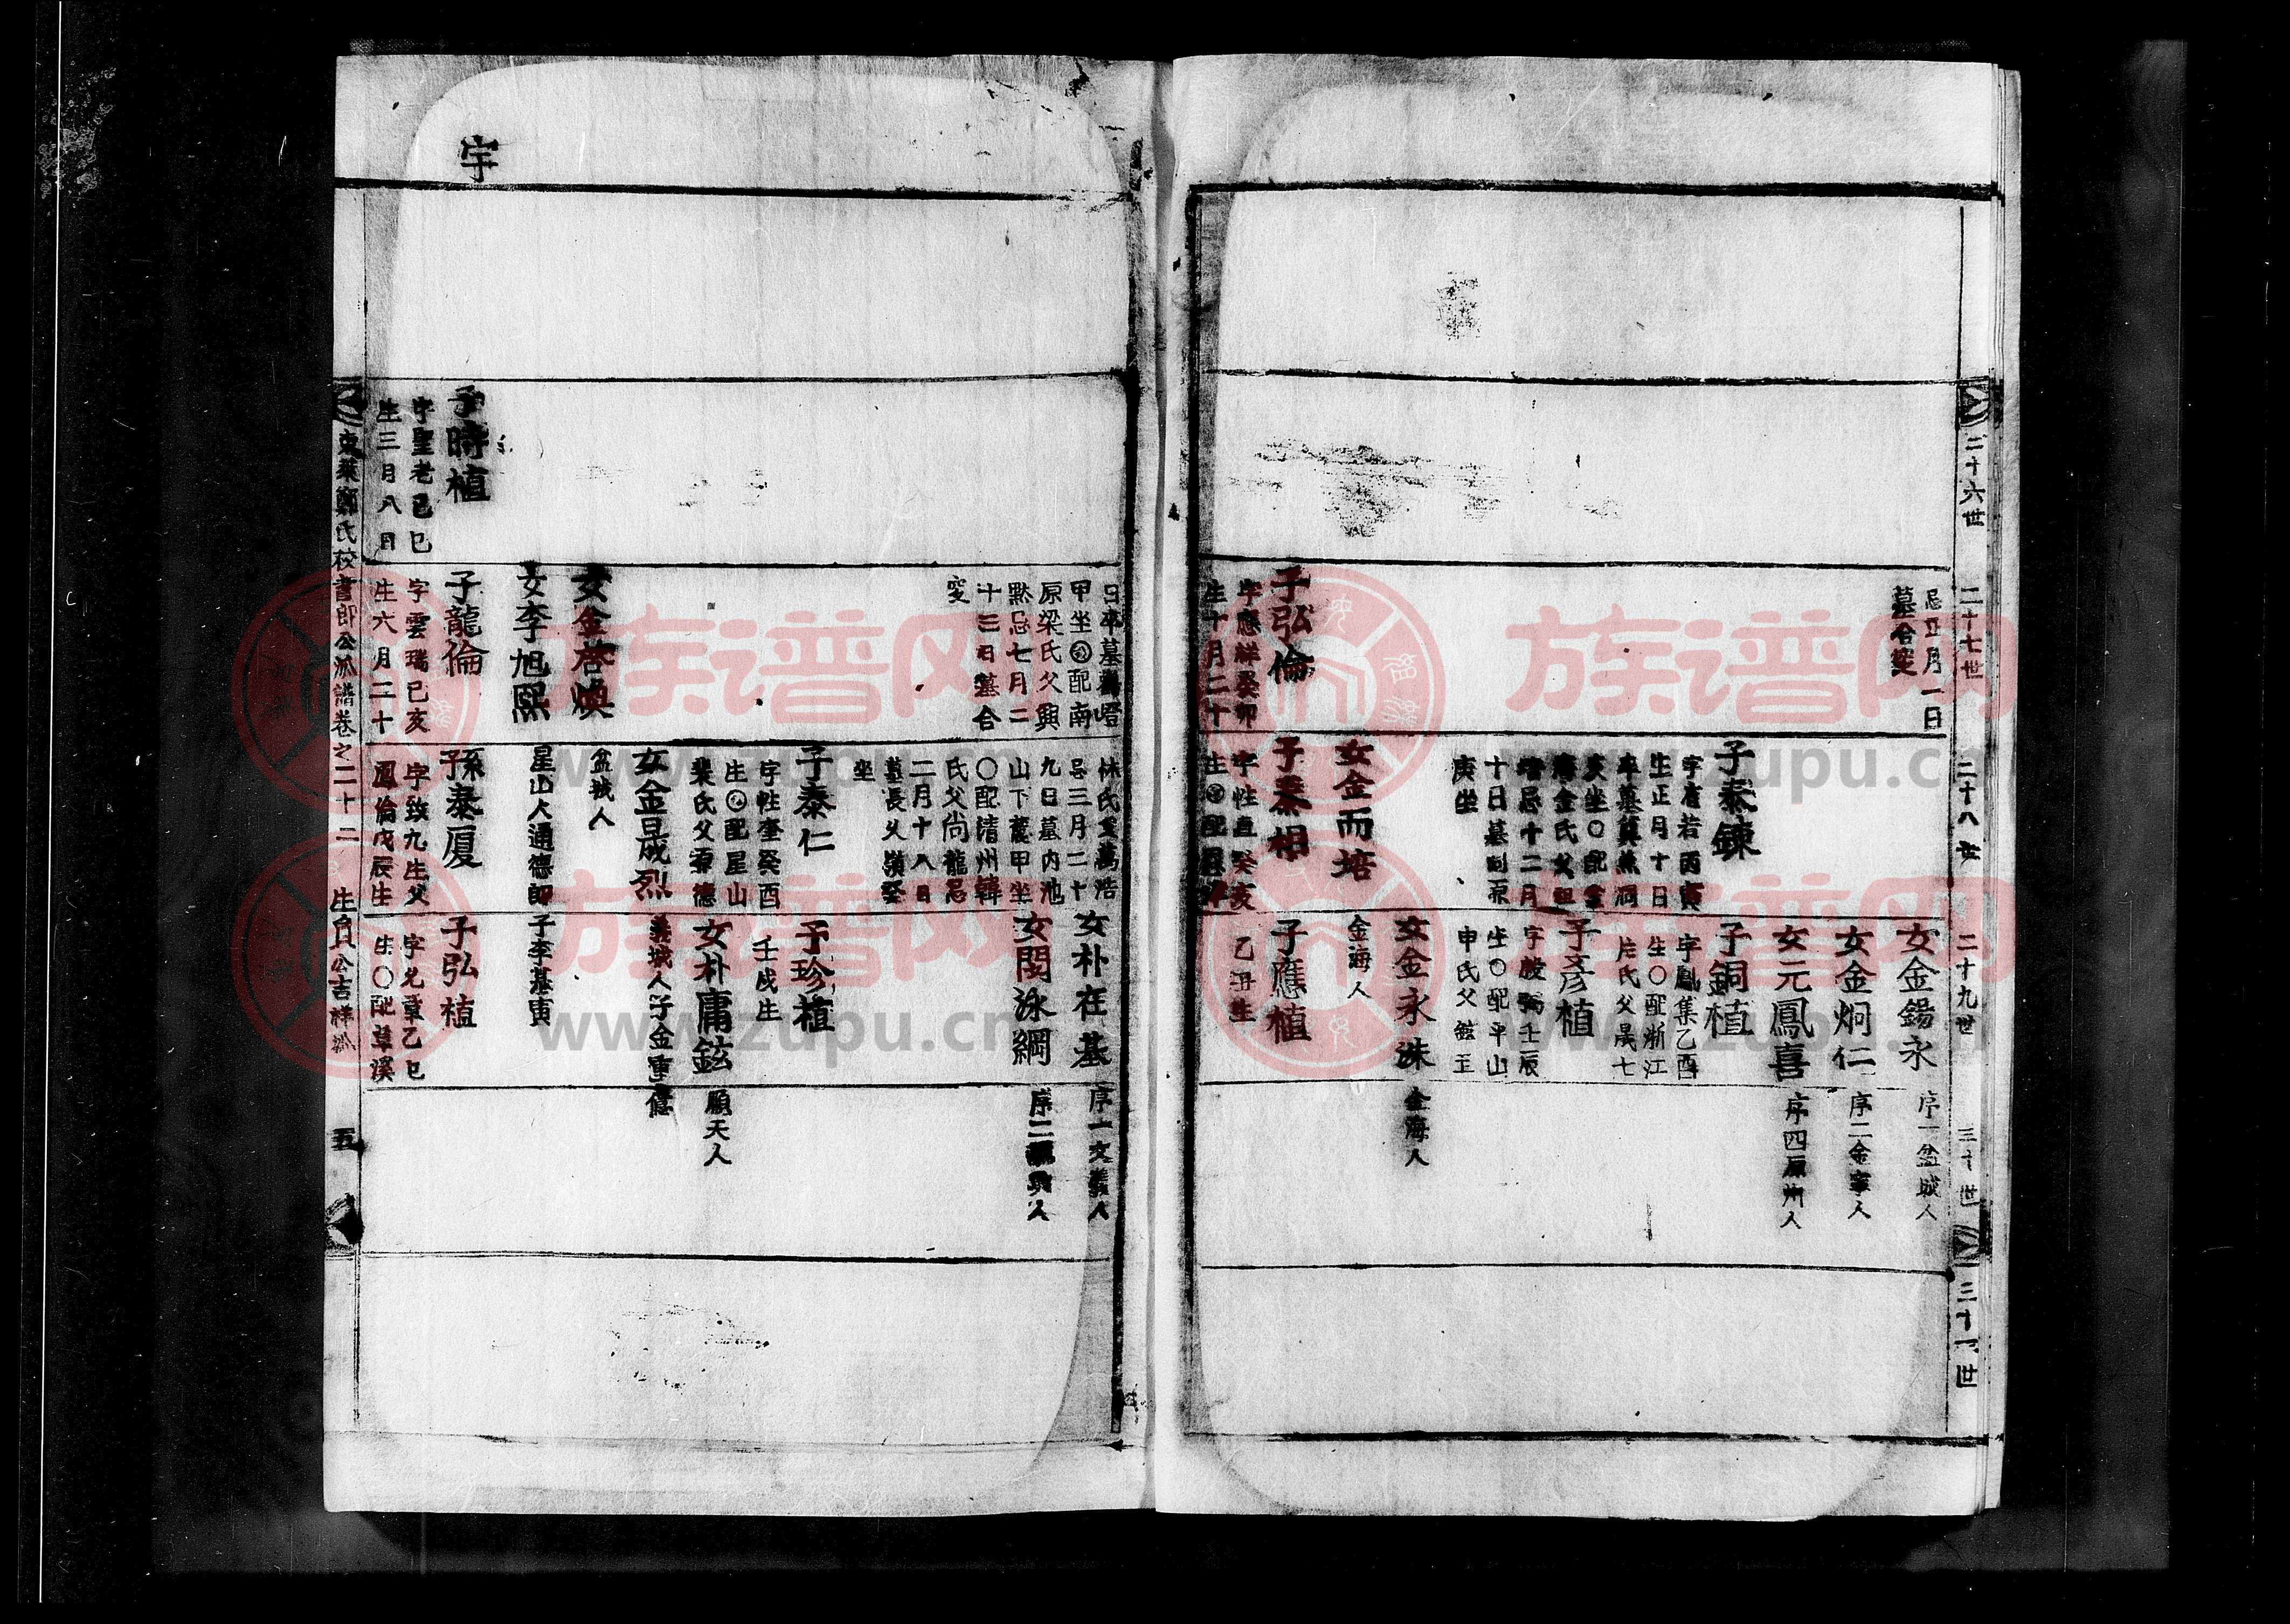 二十六世
二十七世
二十八世
二十九世
三十世
三十一世
忌正月一日
墓合窆
子弘倫
字應祥癸卯
生十月二十
子泰鍊
字君若丙寅
生正月十日
卒墓箕燕洞
亥坐〇配金
海金氏父
忌十二月
十日墓
庚坐
女金而培
子泰相
字性直癸亥
女金錫永
序一盆城人
女金炯仁
序二金寧人
女元鳳喜
序四原州人
子銅植
字鳳集乙酉
生〇配浙江
片氏父晟七
子彥植
字殷弼壬辰
生〇配平山
申氏父鉉玉
女金永洙
金海人
金海人
子應植
乙丑生
宇
子時植
字聖老己巳
生三月八日
日卒墓
甲坐配南
原梁氏父興
默忌七月二
十三日墓合
窆
女金啓煥
女李旭熙
子龍倫
字雲瑞己亥
生六月二十
林氏父萬浩
忌三月二十
九日墓內池
山下麓甲坐
〇配淸州韓
氏父尚龍忌
二月十八日
墓長久嶺癸
坐
子泰仁
字性奎癸酉
生配星山
裴氏父德
女金晟烈
盆城人
星山人通德郎
孫泰厦
字致九生父
鳳倫戊辰生
女朴在基
序一文義人
女閔泳綱
序二驪興人
子珍植
壬戌生
女朴庸鉉
順天人
義城人子金重億
子李基寅
子弘植
字允章乙巳
生〇配草溪
東萊鄭氏校書郎公派譜卷之二十二
生員公吉祥派
五
族谱网
www.zupu.cn
族谱网
www.zupu.cn
族谱网
www.zupu.cn
族谱网
www.zupu.cn